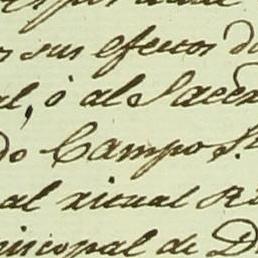 s sus efectos d
al, ò al Sacer
do Campo S.
al ritual R
piscopal de D